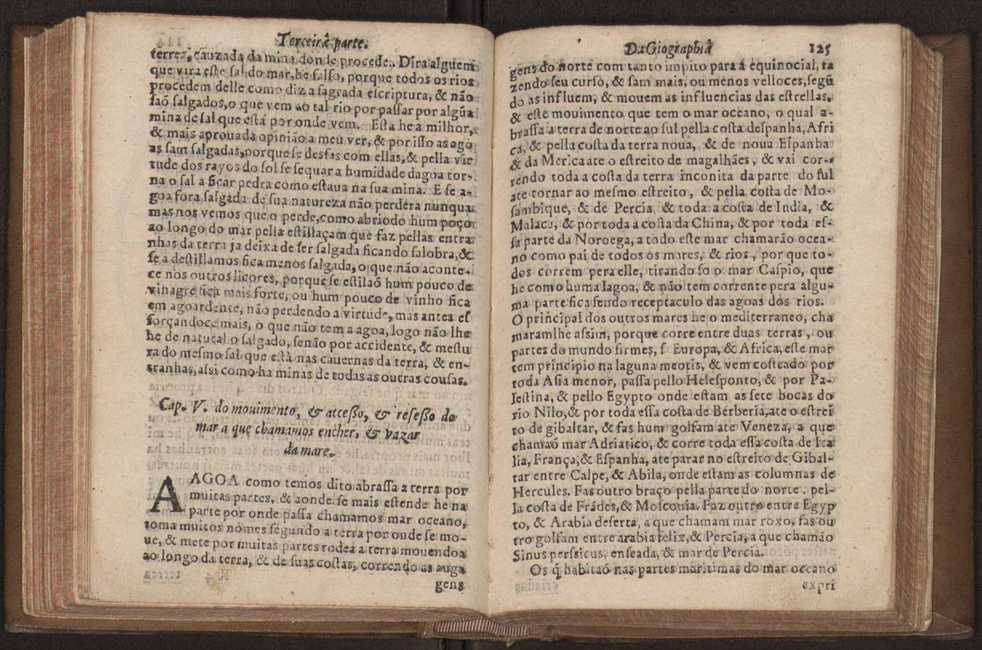 Terceira parte.
terrea, cauzada da mina donde procede. Dira alguem
que vira este sal do mar, he falso, porque todos os rios
procedem delle como diz a sagrada escriptura, & não
saõ salgados, o que vem ao tal rio por passar por algũa
mina de sal que està por onde vem. Esta he a milhor,
& mais aprouada opinião a meu ver, & por isso as ago
as sam salgadas, porque se desfas com ellas, & pella vir
tude dos rayos do sol se sequar a humidade dagoa tor-
na o sal a ficar pedra como estaua na sua mina. E se a-
goa fora salgada de sua natureza não perdera nunqua
mas nos vemos que o perde, como abriodo hum poço
ao longo do mar pella estillaçam que faz pellas entra
nhas da terra ja deixa de ser salgada ficando salobra, &
se a destillamos fica menos salgada, o que não aconte-
ce nos outros licores, porque se estilaõ hum pouco de
vinagre fica mais forte, ou hum pouco de vinho fica
em agoardente, não perdendo a virtude, mas antes es
forçandoce mais, o que não tem a agoa, logo não lhe
he de natural o salgado, senão por accidente, & mestu
ra do mesmo sal que està nas cauernas da terra, & en-
tranhas, assi como ha minas de todas as outras cousas.
Cap. V. do mouimento, & accesso, & resesso do
mar a que chamamos encher, & vazar
da mare.
A AGOA como temos dito abrassa a terra por
muitas partes, & aonde se mais estende he na
parte por onde passa chamamos mar oceano,
toma muitos nomes segundo a terra por onde se mo-
ue, & mete por muitas partes rodea a terra mouendoa
ao longo da terra, & de suas costas, correndo as auga
gens
Da Giographia 125
gens do norte com tanto impito para á equinocial, fa
zendo seu curso, & sam mais, ou menos velloces, segũ
do as influem, & mouem as influencias das estrellas,
& este mouimento que tem o mar oceano, o qual a-
brassa a terra de norte ao sul pella costa despanha, Afri
ca, & pella costa da terra noua, & de noua Espanha
& da Merica ate o estreito de magalhães, & vai cor-
rendo toda a costa da terra inconita da parte do sul
ate tornar ao mesmo estreito, & pella costa de Mo-
sambique, & de Percia, & toda a costa de India, &
Malaca, & por toda a costa da China, & por toda es-
sa parte da Noroega, a todo este mar chamarão ocea-
no como pai de todos os mares, & rios, por que to-
dos correm pera elle, tirando so o mar Caspio, que
he como huma lagoa, & não tem corrente pera algu-
ma parte fica sendo receptaculo das agoas dos rios.
O principal dos outros mares he o mediterraneo, cha
maramlhe assim, porque corre entre duas terras, ou
partes do mundo firmes, s Europa, & Africa, este mar
tem principio na laguna meotis, & vem costeado por
toda Asia menor, passa pello Helesponto, & por Pa-
lestina, & pello Egypto onde estam as sete bocas do
rio Nilo, & por toda essa costa de Berberia, ate o estrei
to de gibaltar, & fas hum golfam ate Veneza, a que
chamaõ mar Adriatico, & corre toda essa costa de Ita
lia, França, & Espanha, ate parar no estreito de Gibal-
tar entre Calpe, & Abila, onde estam as columnas de
Hercules. Fas outro braço pella parte do norte, pel-
la costa de Frãdes, & Moscouia. Faz outro entre Egyp
to, & Arabia deserta, a que chamam mar roxo, fas ou
tro golfam entre arabia felix, & Percia, a que chamão
Sinus persicus, enseada, & mar de Percia.
Os q̃ habitaõ nas partes maritimas do mar oceano
expri